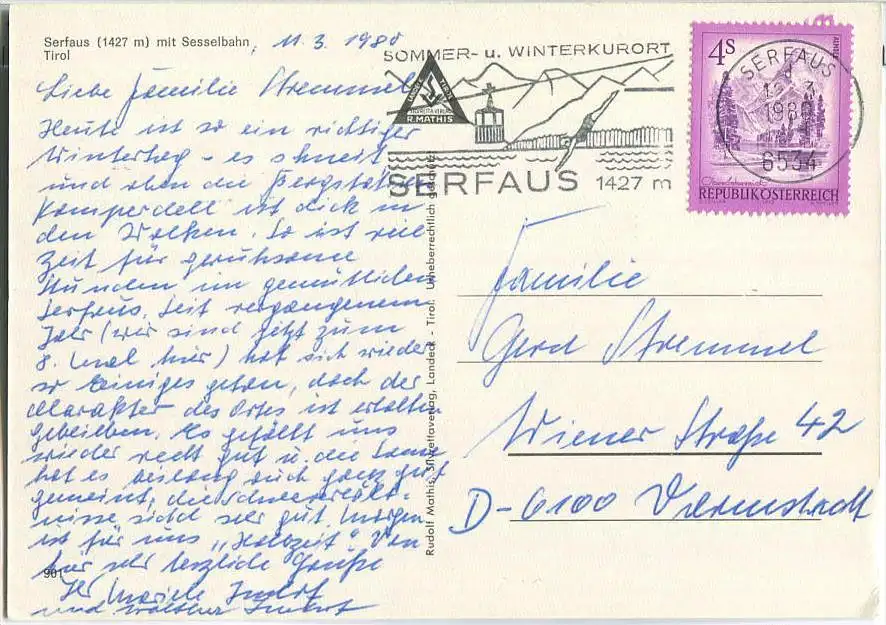 Serfaus (1427 m) mit Sesselbahn
Tirol
11.3.1980
Liebe Familie Stremmel
Heute ist so ein richtiger
Wintertag - es schneit
und oben die Bergstation
Komperdell ist dick in
den Wolken. So ist viel
Zeit für geruhsame
Stunden im gemütlichen
Serfaus. Seit vergangenem
Jahr (wir sind jetzt zum
8. Mal hier) hat sich wieder
so Einiges getan, doch der
Charakter des Ortes ist erhalten
geblieben. Es gefällt uns
wieder recht gut u. die Sonne
hat es bislang auch ganz gut
gemeint, die Schneeverhält-
nisse sind sehr gut. Morgen
ist für uns "Halbzeit". Von
hier sehr herzliche Grüße
Ihr
und
901
Rudolf Mathis, Silvrettaverlag, Landeck - Tirol. Urheberrechtlich geschützt
SOMMER- u. WINTERKURORT
R. MATHIS
SERFAUS 1427 m
SERFAUS
1980
6534
4S
REPUBLIK ÖSTERREICH
Familie
Gerd Stremmel
Wiener Straße 42
D-6100 Darmstadt